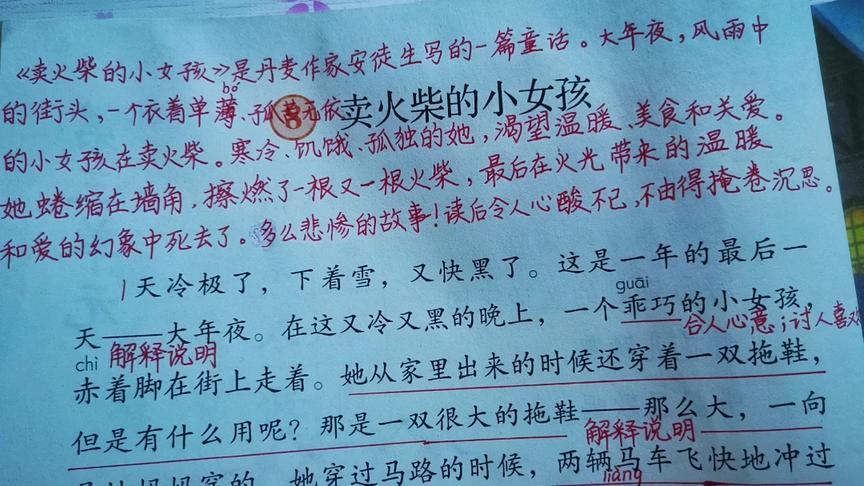 《卖火柴的小女孩》是丹麦作家安徒生写的一篇童话。大年夜，风雨中
bó
的街头，一个衣着单薄、孤苦无依
8 卖火柴的小女孩
的小女孩在卖火柴。寒冷、饥饿、孤独的她，渴望温暖、美食和关爱。
她蜷缩在墙角，擦燃了一根又一根火柴，最后在火光带来的温暖
和爱的幻象中死去了。多么悲惨的故事！读后令人心酸不已，不由得掩卷沉思。
1天冷极了，下着雪，又快黑了。这是一年的最后一
guāi
天——大年夜。在这又冷又黑的晚上，一个乖巧的小女孩，
合人心意；讨人喜欢
chì 解释说明
赤着脚在街上走着。她从家里出来的时候还穿着一双拖鞋，
但是有什么用呢？那是一双很大的拖鞋——那么大，一向
解释说明
妈妈穿的。她穿过马路的时候，两辆马车飞快地冲过
liàng